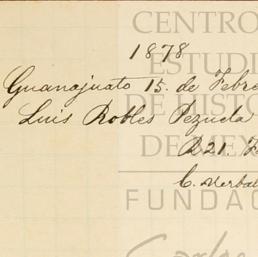 1878
Guanajuato 15. de Febre
Luis Robles Pezuela
221. F
C. Verbal
CENTRO
ESTUDI
DE HISTO
DE MEX
FUNDAC
Carlos